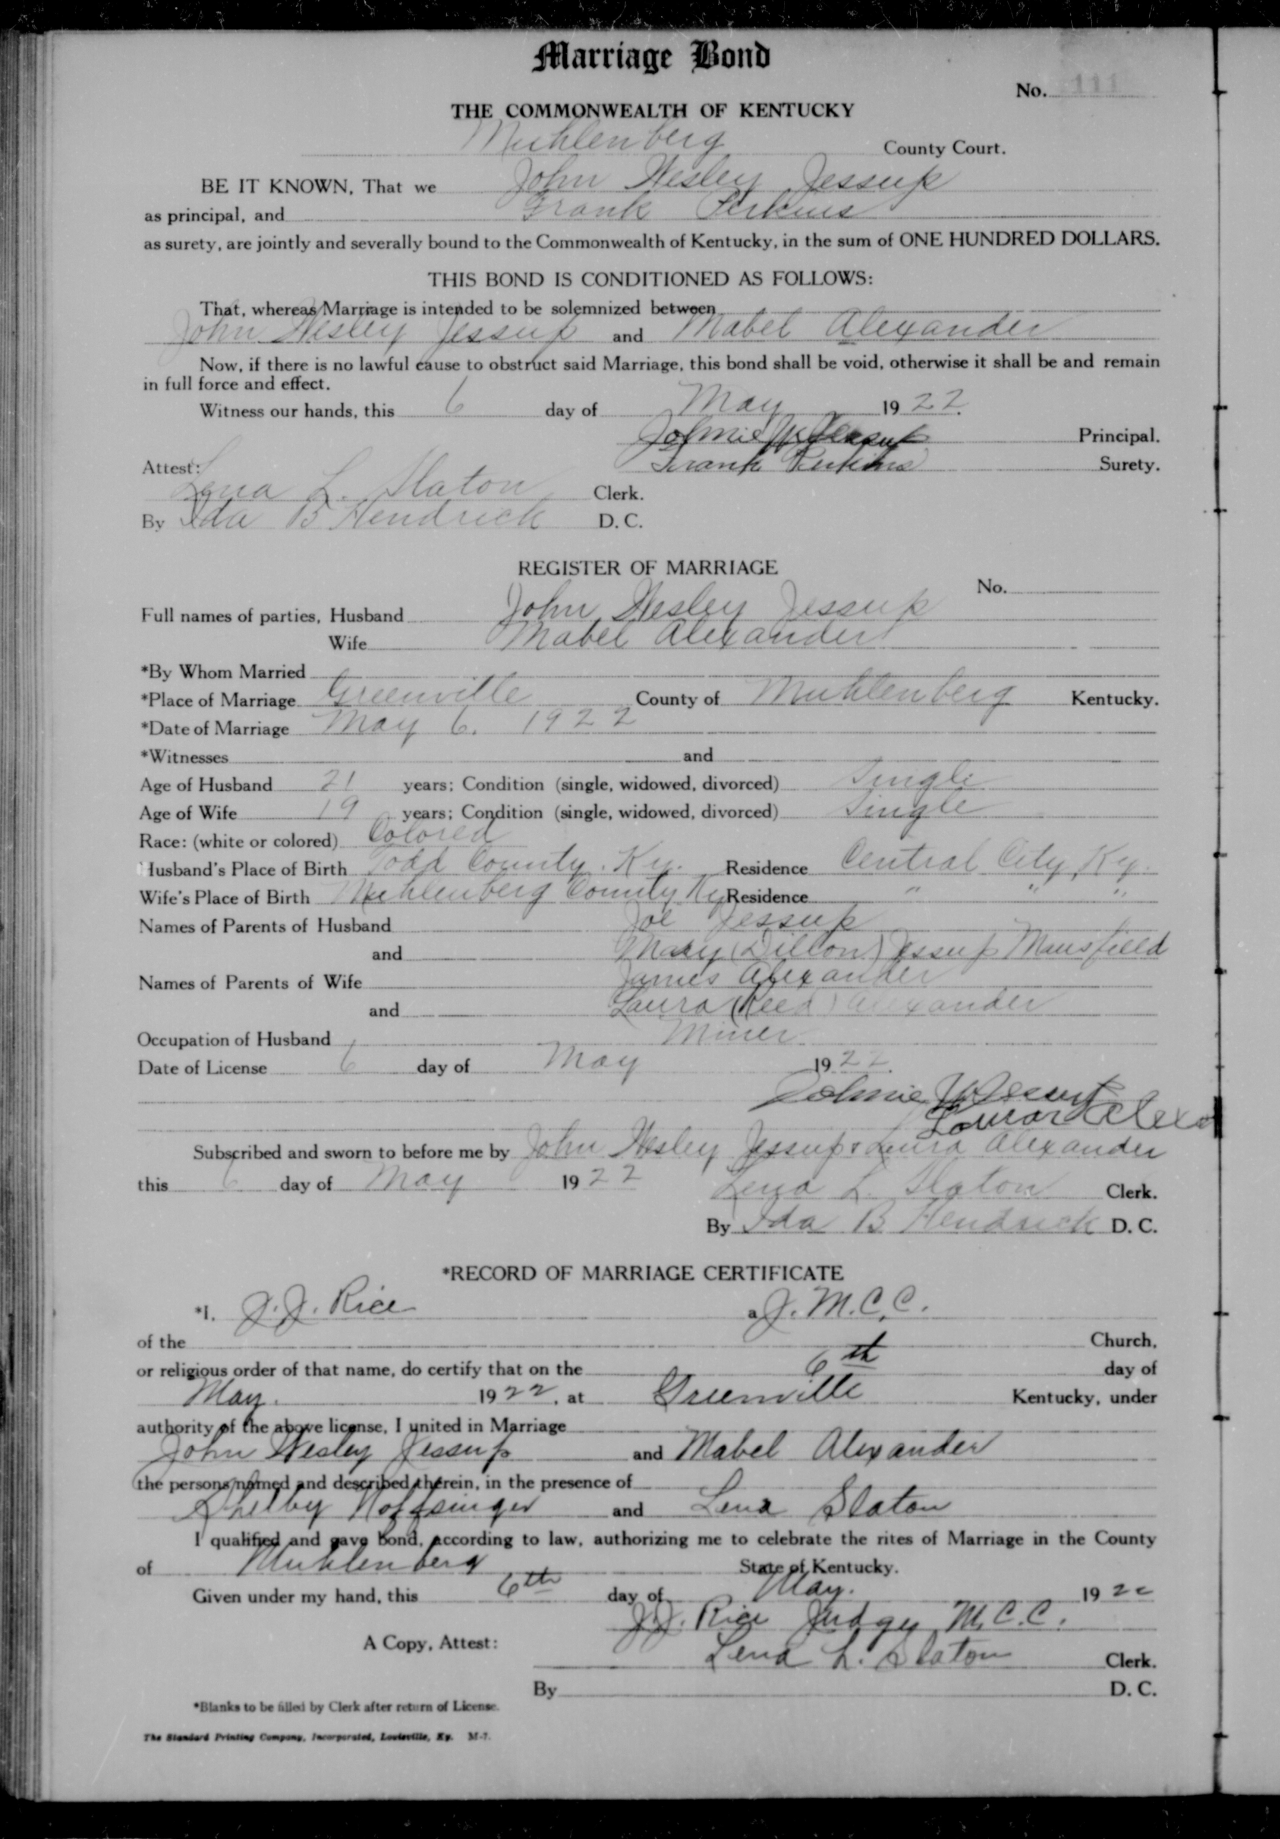 Marriage Bond
No. 111
THE COMMONWEALTH OF KENTUCKY
Muhlenberg County Court.
BE IT KNOWN, That we John Wesley Jessup
as principal, and Frank Perkins
as surety, are jointly and severally bound to the Commonwealth of Kentucky, in the sum of ONE HUNDRED DOLLARS.
THIS BOND IS CONDITIONED AS FOLLOWS:
That, whereas Marriage is intended to be solemnized between
John Wesley Jessup and Mabel Alexander
Now, if there is no lawful cause to obstruct said Marriage, this bond shall be void, otherwise it shall be and remain
in full force and effect.
Witness our hands, this 6 day of May 1922.
Johnie W Jessup Principal.
Attest: Frank Perkins Surety.
Lena L. Slaton Clerk.
By Ida B Hendrick D. C.
REGISTER OF MARRIAGE
No.
Full names of parties, Husband John Wesley Jessup
Wife Mabel Alexander
*By Whom Married
*Place of Marriage Greenville County of Muhlenberg Kentucky.
*Date of Marriage May 6. 1922
*Witnesses and
Age of Husband 21 years; Condition (single, widowed, divorced) Single
Age of Wife 19 years; Condition (single, widowed, divorced) Single
Race: (white or colored) Colored
Husband's Place of Birth Todd County. Ky. Residence Central City, Ky.
Wife's Place of Birth Muhlenberg County Ky Residence " " "
Names of Parents of Husband Joe Jessup
and Mary (Dillon) Jessup Mansfield
Names of Parents of Wife James Alexander
and Laura (Reed) Alexander
Occupation of Husband Miner
Date of License 6 day of May 1922.
Johnie W Jessup
Laura Alexa
Subscribed and sworn to before me by John Wesley Jessup & Laura Alexander
this 6 day of May 1922 Lena L. Slaton Clerk.
By Ida B Hendrick D. C.
*RECORD OF MARRIAGE CERTIFICATE
*I, J. J. Rice a J. M. C. C.
of the Church,
or religious order of that name, do certify that on the 6th day of
May. 1922, at Greenville Kentucky, under
authority of the above license, I united in Marriage
John Wesley Jessup and Mabel Alexander
the persons named and described therein, in the presence of
Shelby Noffsinger and Lena Slaton
I qualified and gave bond, according to law, authorizing me to celebrate the rites of Marriage in the County
of Muhlenberg State of Kentucky.
Given under my hand, this 6th day of May. 1922
J. J. Rice Judge M. C. C.
A Copy, Attest: Lena L. Slaton Clerk.
By D. C.
*Blanks to be filled by Clerk after return of License.
The Standard Printing Company, Incorporated, Louisville, Ky. M-7.